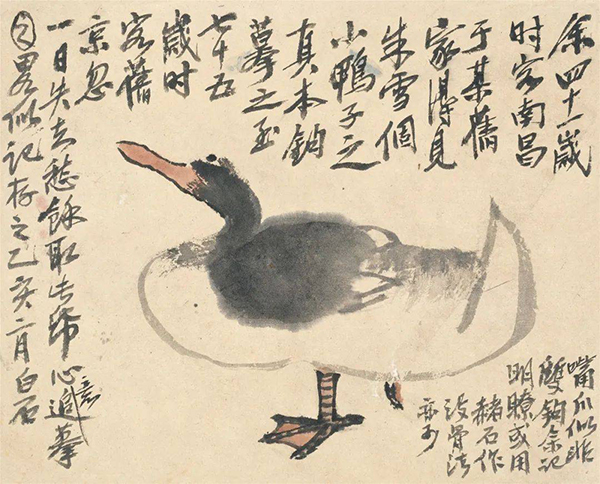 余四十一歲
时客南昌
于某舊
家得見
朱雪個
小鴨子之
真本鈎
摹之至
七十五
歲时
客舊
京忽
一日失去愁餘取此帋心意追摹
畧似記存之乙亥二月白石
嘴爪似非
雙鈎余記
明瞭或用
赭石作
没骨法
亦可